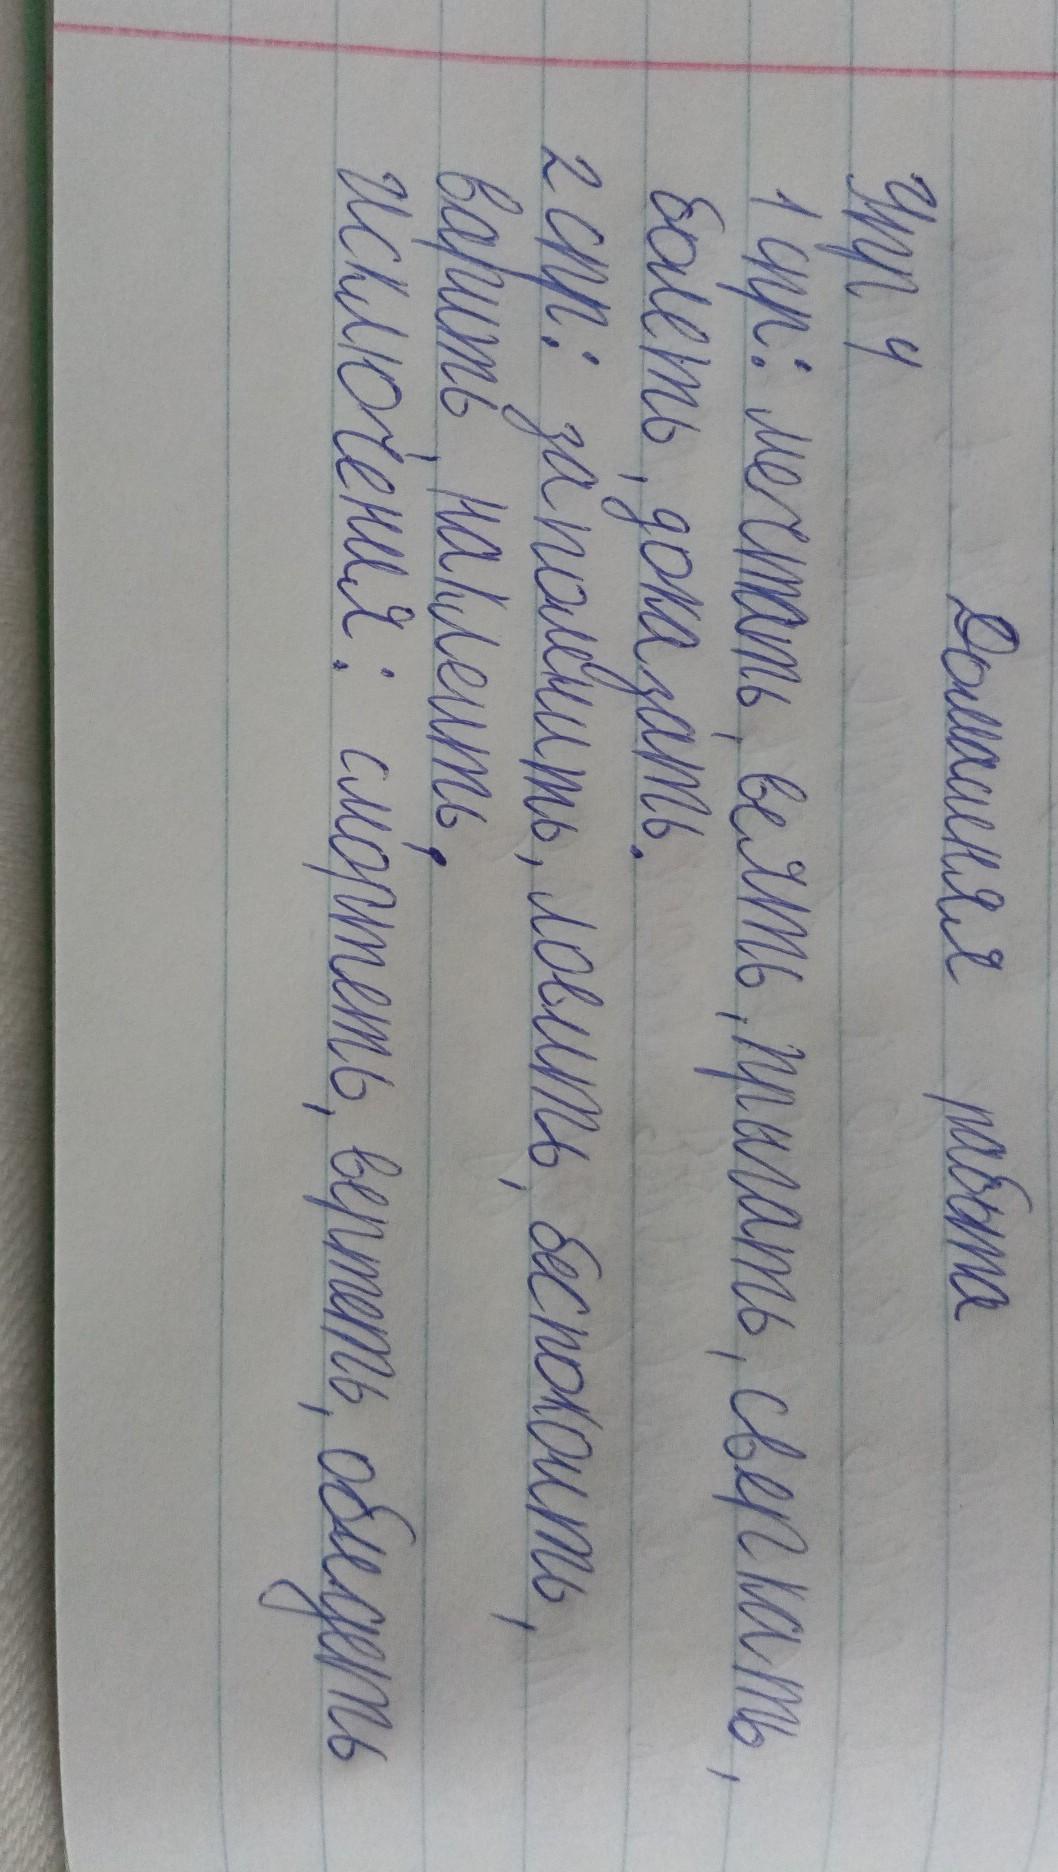 Домашняя работа
Упр 4
1 спр: мечтать, веять, прыгать, сверкать,
болеть, доказать.
2 спр: запомнить, ловить, беспокоить,
варить, наклеить.
Исключения: смортеть, вертеть, обледеть